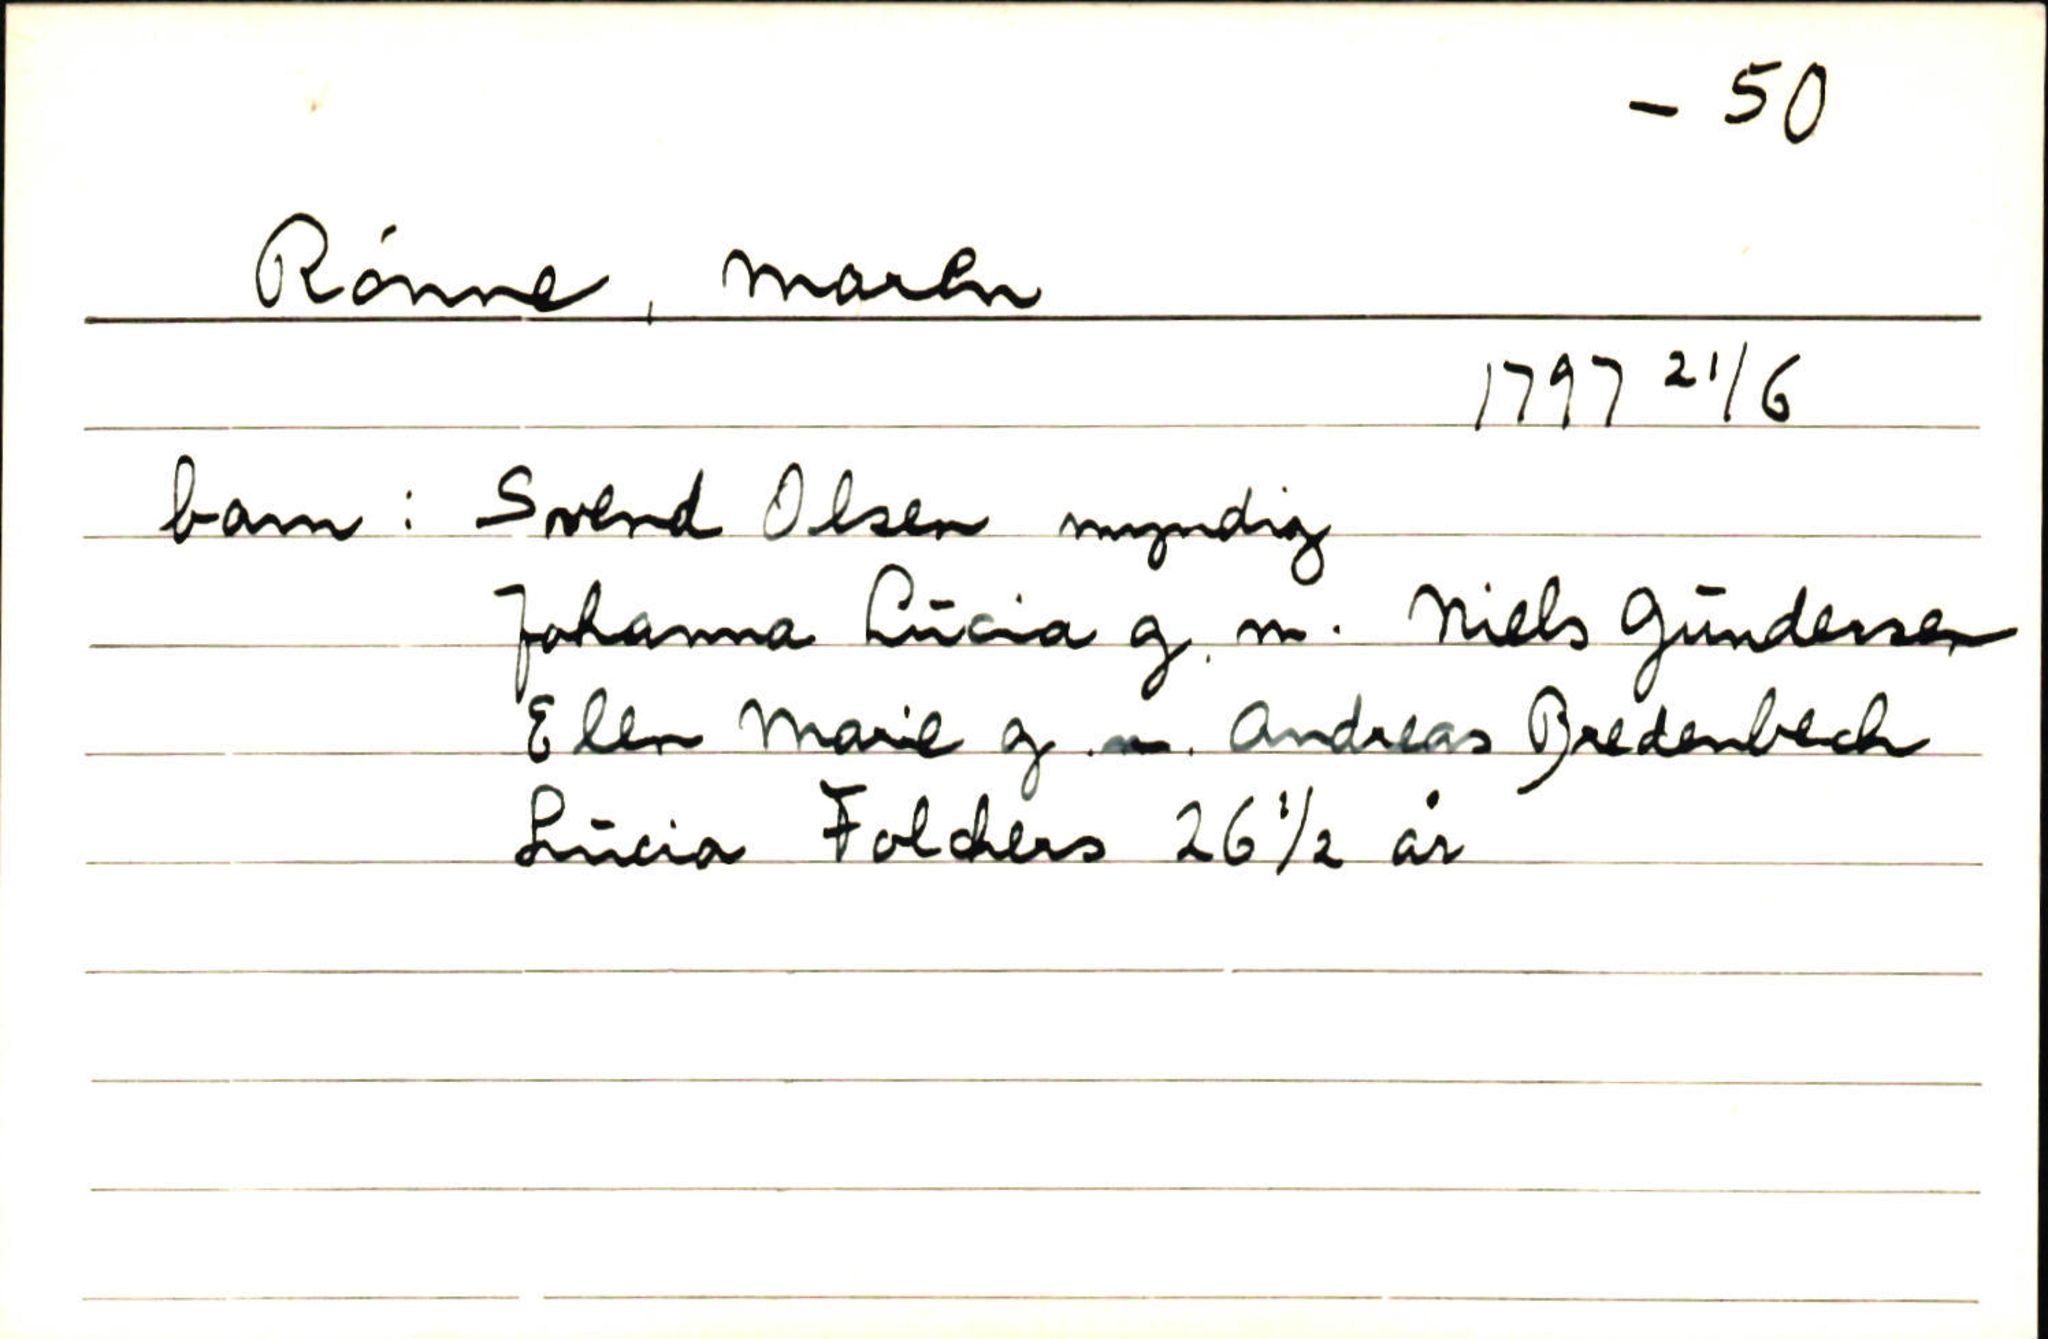 - 50
Rönne, Maren
1797 21/6
barn : Svend Olsen myndig
Johanna Lūcia g. m. Niels Gūndersen
Elen Marie g. m. Andreas Bredenbech
Lūcia Folchers 26 1/2 år